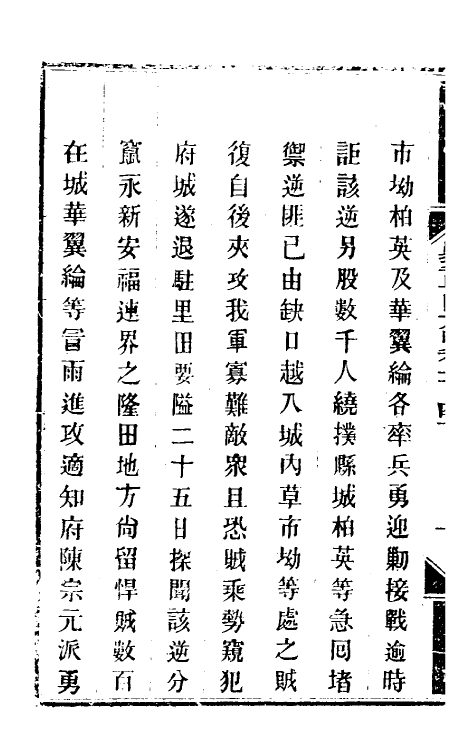 市坳柏英及華翼綸各率兵勇迎勦接戰逾時
詎該逆另股數千人繞撲縣城柏英等急囘堵
禦逆匪已由缺口越入城內草市坳等處之賊
復自後夾攻我軍寡難敵衆且恐賊乘勢窺犯
府城遂退駐里田要隘二十五日探聞該逆分
竄永新安福連界之隆田地方尙留悍賊數百
在城華翼綸等冒雨進攻適知府陳宗元派勇